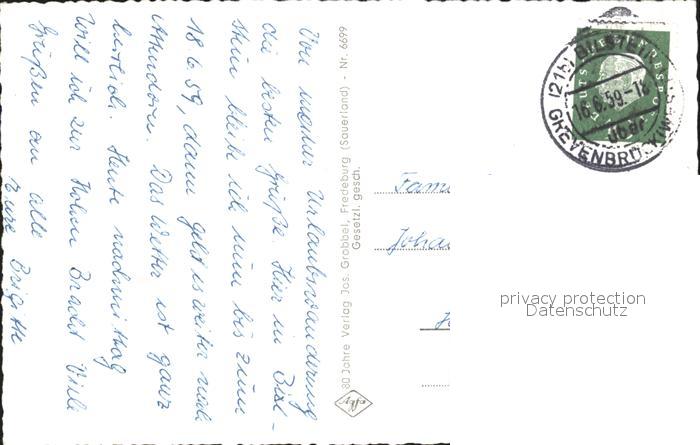 Von meiner Urlaubswanderung
die besten Grüße. Hier in Bil-
stein bleibe ich nun bis zum
18.6.59, dann geht es weiter nach
Attendorn. Das Wetter ist ganz
herrlich. Heute nachmittag
will ich zur Hohen Bracht. Viele
Grüßen an alle
Eure Brigitte
80 Jahre Verlag Jos. Grobbel, Fredeburg (Sauerland) - Nr. 6699
Gesetzl. gesch.
Agfa
(21b) BILSTEIN
16.6.59-18
GREVENBRÜCK (W
DEUTSCHE BUNDESPOST
Fami
Johan
privacy protection
Datenschutz